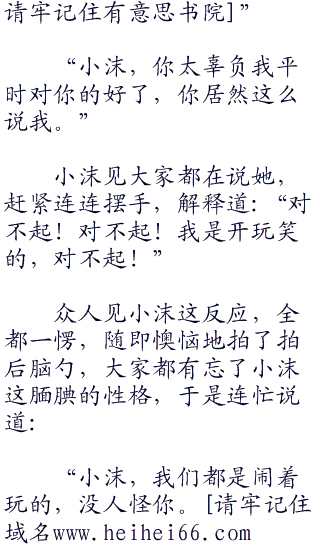 请牢记住有意思书院]”
“小沫，你太辜负我平
时对你的好了，你居然这么
说我。”
小沫见大家都在说她，
赶紧连连摆手，解释道：“对
不起！对不起！我是开玩笑
的，对不起！”
众人见小沫这反应，全
都一愣，随即懊恼地拍了拍
后脑勺，大家都有忘了小沫
这腼腆的性格，于是连忙说
道：
“小沫，我们都是闹着
玩的，没人怪你。[请牢记住
域名www.heihei66.com